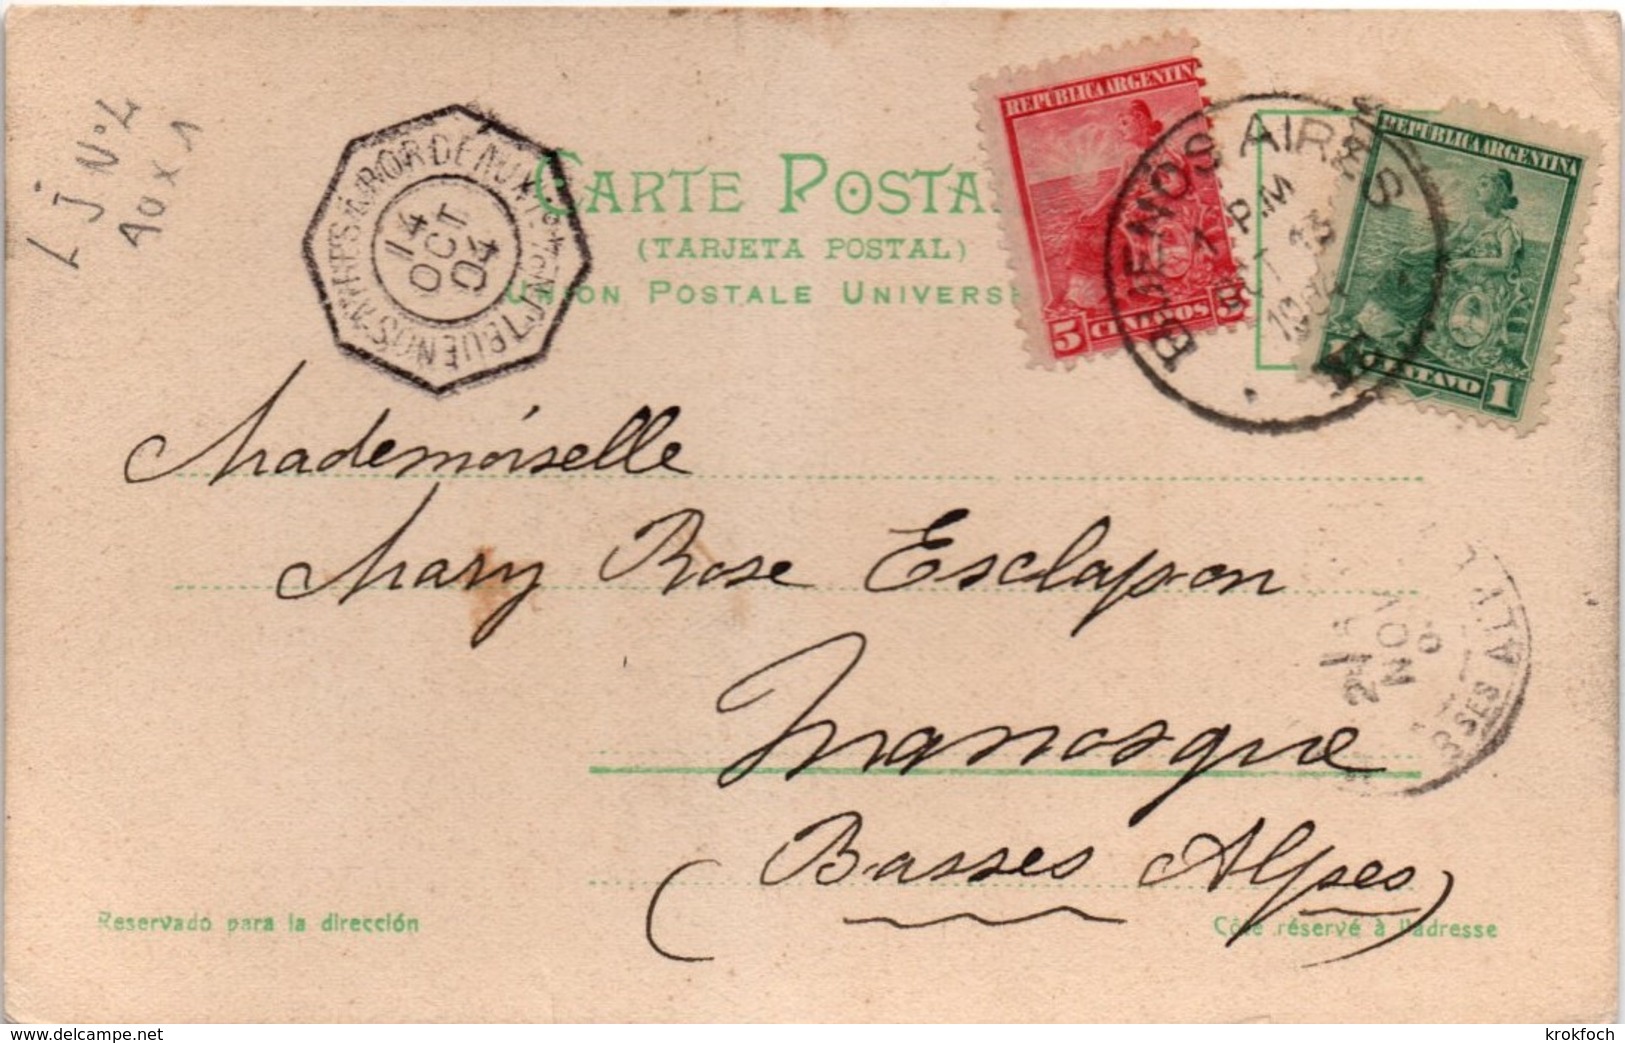 L J N°4
Aux 1
BUENOS AYRES À BORDEAUX
14
OCT
04
CARTE POSTA
(TARJETA POSTAL)
UNION POSTALE UNIVERS
REPUBLICA ARGENTIN
5 CENTAVOS 5
BUENOS AIRES
7 P.M
OCT 13
1904
REPUBLICA ARGENTINA
CENTAVO 1
Mademoiselle
Mary Rose Esclapon
Manosque
(Basses Alpes)
NOV
BSES ALP
Reservado para la dirección
Côté réservé à l'adresse
www.delcampe.net
krokfoch